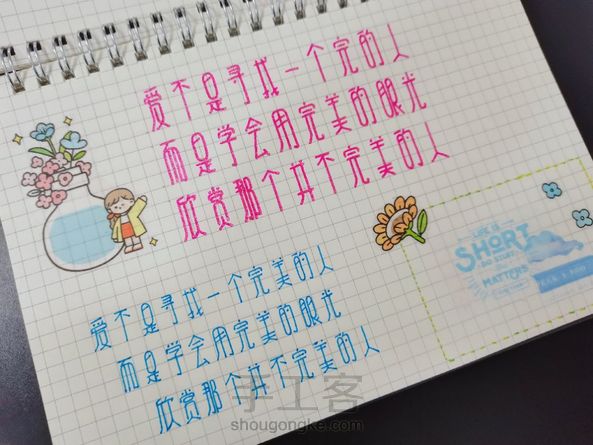 爱不是寻找一个完的人
而是学会用完美的眼光
欣赏那个并不完美的人
爱不是寻找一个完美的人
而是学会用完美的眼光
欣赏那个并不完美的人
LIFE IS
SHORT
DO STUFF
MATTERS
手工客
shougongke.com